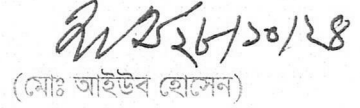 ২৮/১০/২৪
(মোঃ আইউব হোসেন)